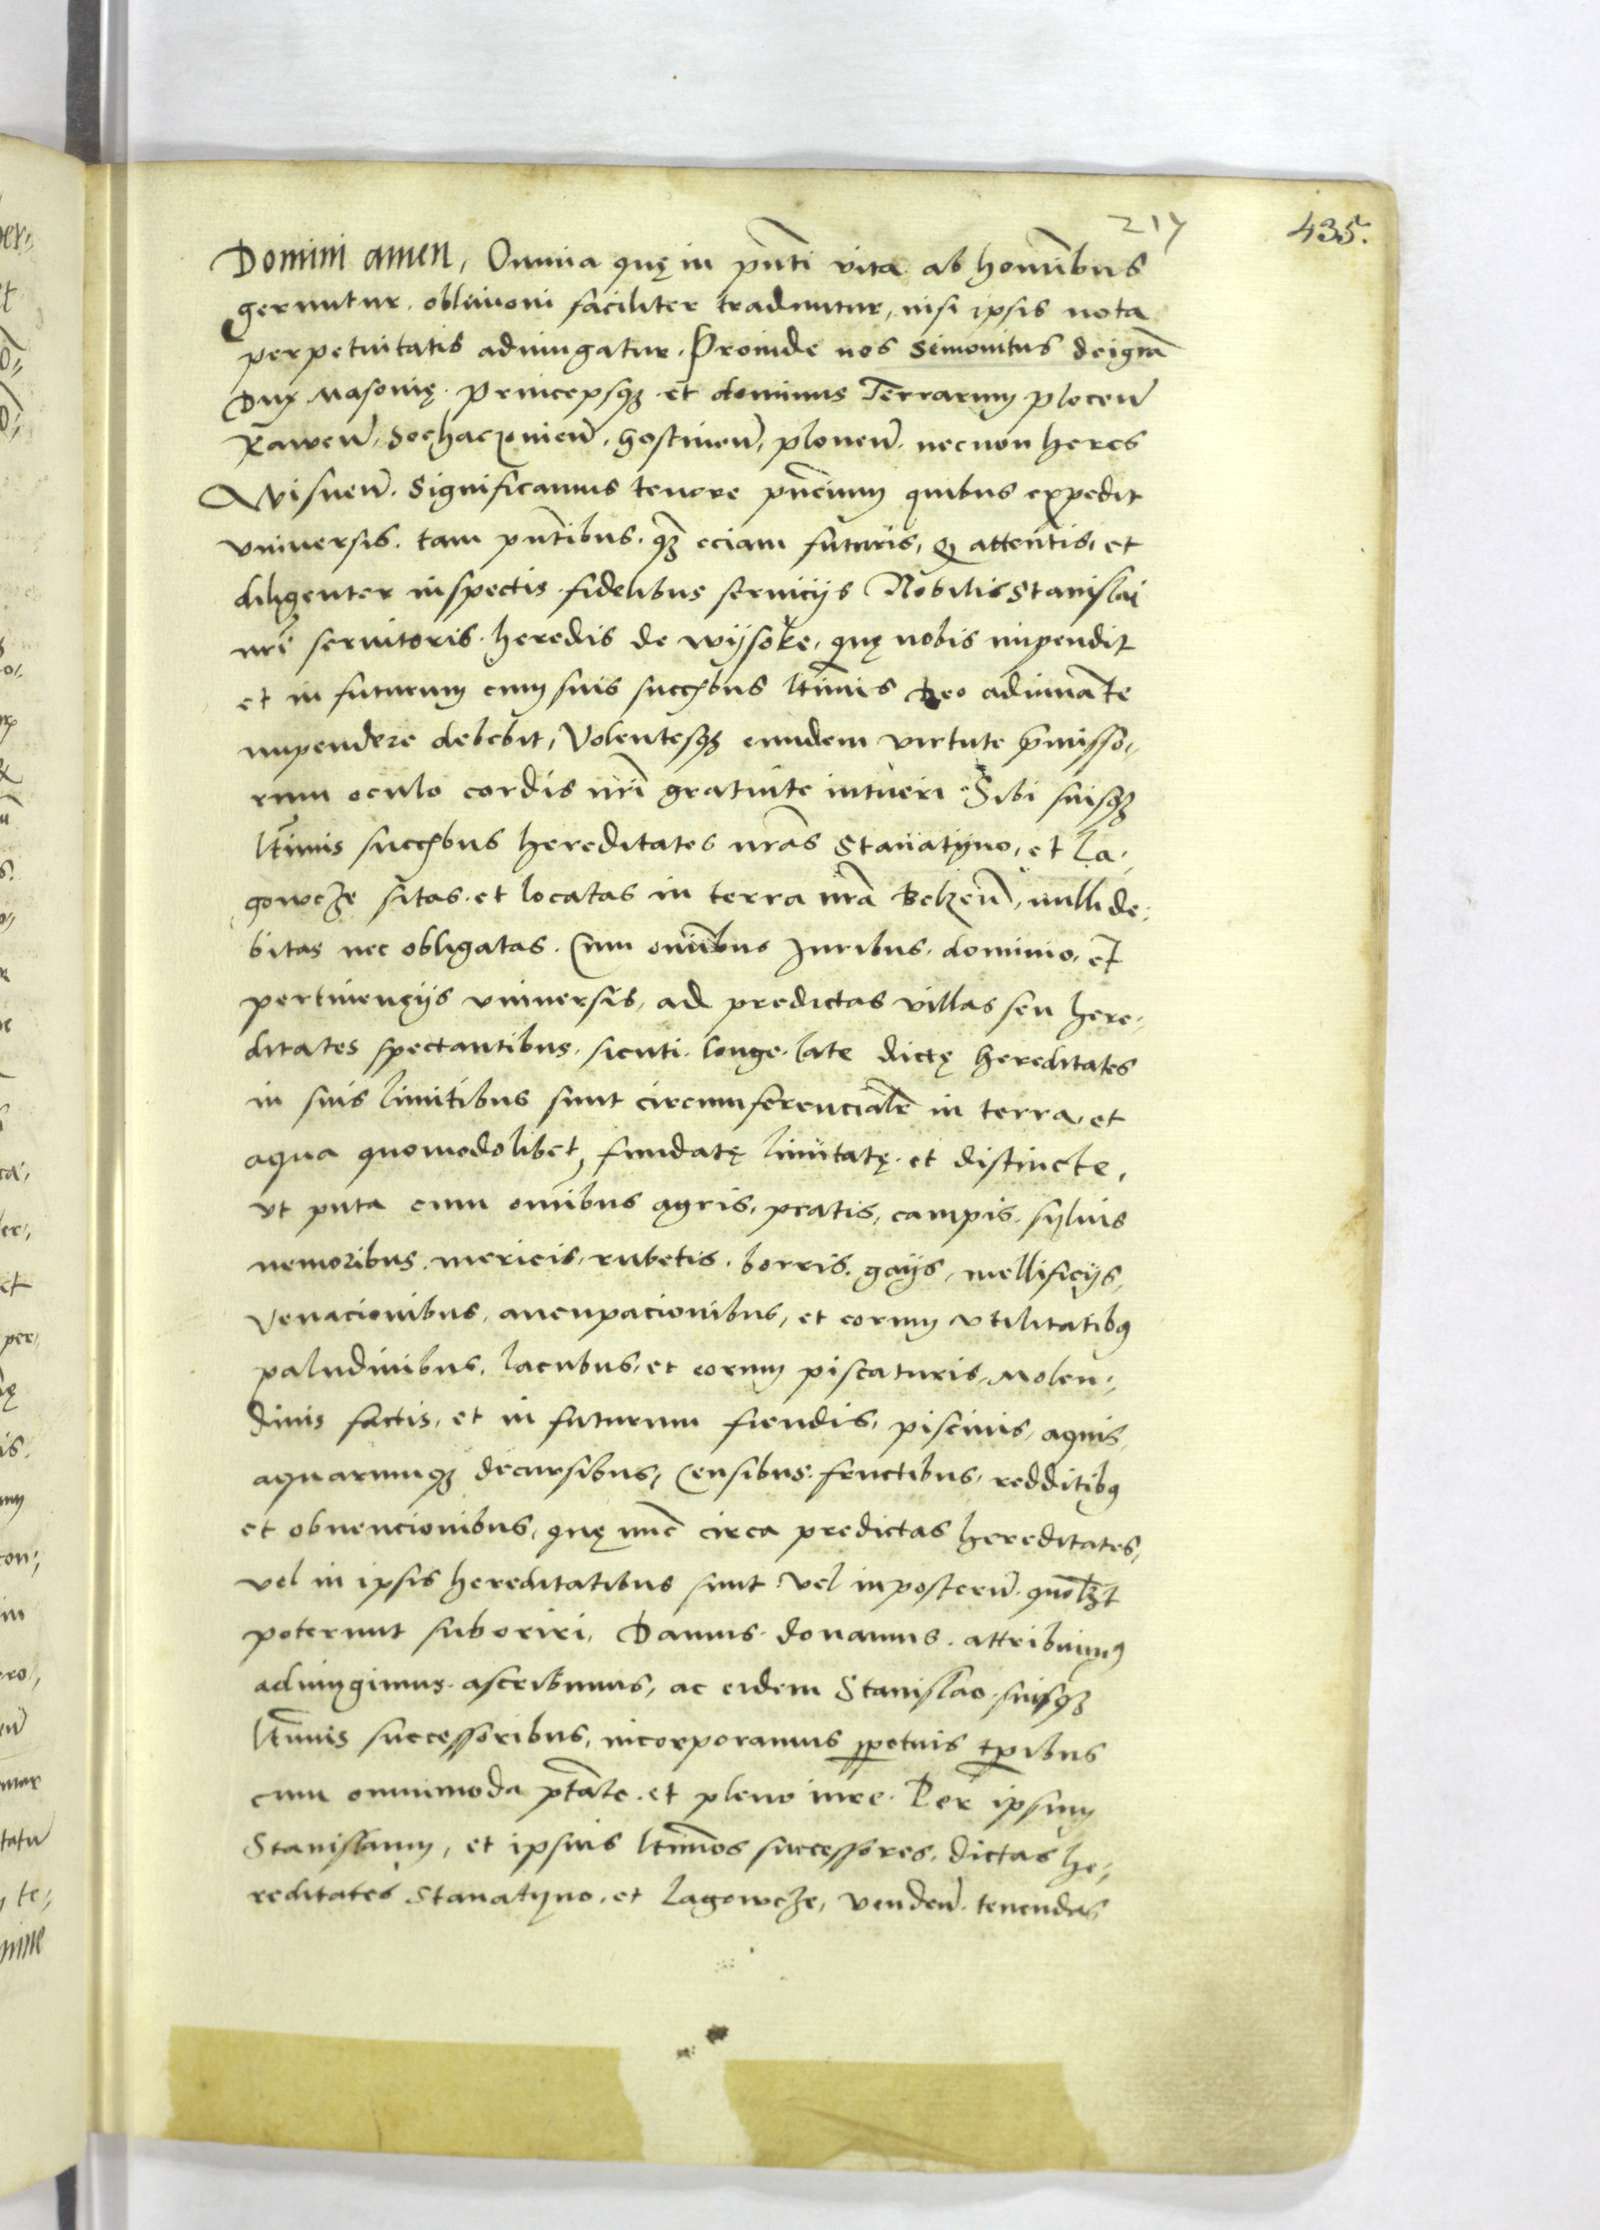 217 435.
Domini amen, Omnia quę in pñti vita ab hominibus
geruntur, oblivioni faciliter traduntur, nisi ipsis nota
perpetuitatis adiungatur. Proinde nos Semovitus dei grã
Dux Masovię. Princepsqz et dominus Terrarum plocen̄
Rawen̄, Sochaczovien̄, Gostinen̄, plonen̄. necnon heres
Wisnen̄. Significamus tenore pñcium quibus expedit
vniversis. tam pñtibus. qz eciam futuris, Q attentis, et
diligenter inspectis fidelibus serviciis Nobilis Stanislai
nrī servitoris. heredis de wysoke, quę nobis impendit
et in futurum cum suis succ̄bus ltīmis deo adiuuāte
impendere debebit, Volentesqz eundem virtute p̄misso,
rum oculo cordis nrī gratuite intueri Sibi suisqz
ltīmis succ̄bus hereditates nrās Stanatyno, et La,
gowcze sitas et locatas in terra nrā Belzen̄, nulli de,
bitas nec obligatas. Cum om̄ibus Iuribus, dominio, et
pertinenciis vniversis, ad predictas villas seu here,
ditates spectantibus, sicuti longe late dictę hereditates
in suis limitibus sunt circumferencialr̄ in terra et
aqua quomodolibet, fundatę limitatę et distincte,
vt puta cum om̄ibus agris, pratis, campis, sylvis
nemoribus, mericis, rubetis, borris, gays, mellificiis,
Venacionibus, aucupacionibus, et eorum vtilitatibus
paludinibus, lacubus, et eorum piscaturis, Molen,
dinis factis, et in futurum fiendis, piscinis, aquis,
aquarumqz decursibus, Censibus fructibus, redditibus
et obvencionibus, quę nūc circa predictas hereditates,
vel in ipsis hereditatibus sunt vel inposterū quolzt
poterunt suboriri, Damus donamus. attribuimus
adiungimus ascribimus, ac eidem Stanislao suisqz
ltīmis successoribus, incorporamus ppetuis tp̄ibus
cum omnimoda ptāte et pleno iure. Per ipsum
Stanislaum, et ipsius ltīmos successores, dictas he,
reditates Stanatyno, et Lagowcze, venden̄ tenendas